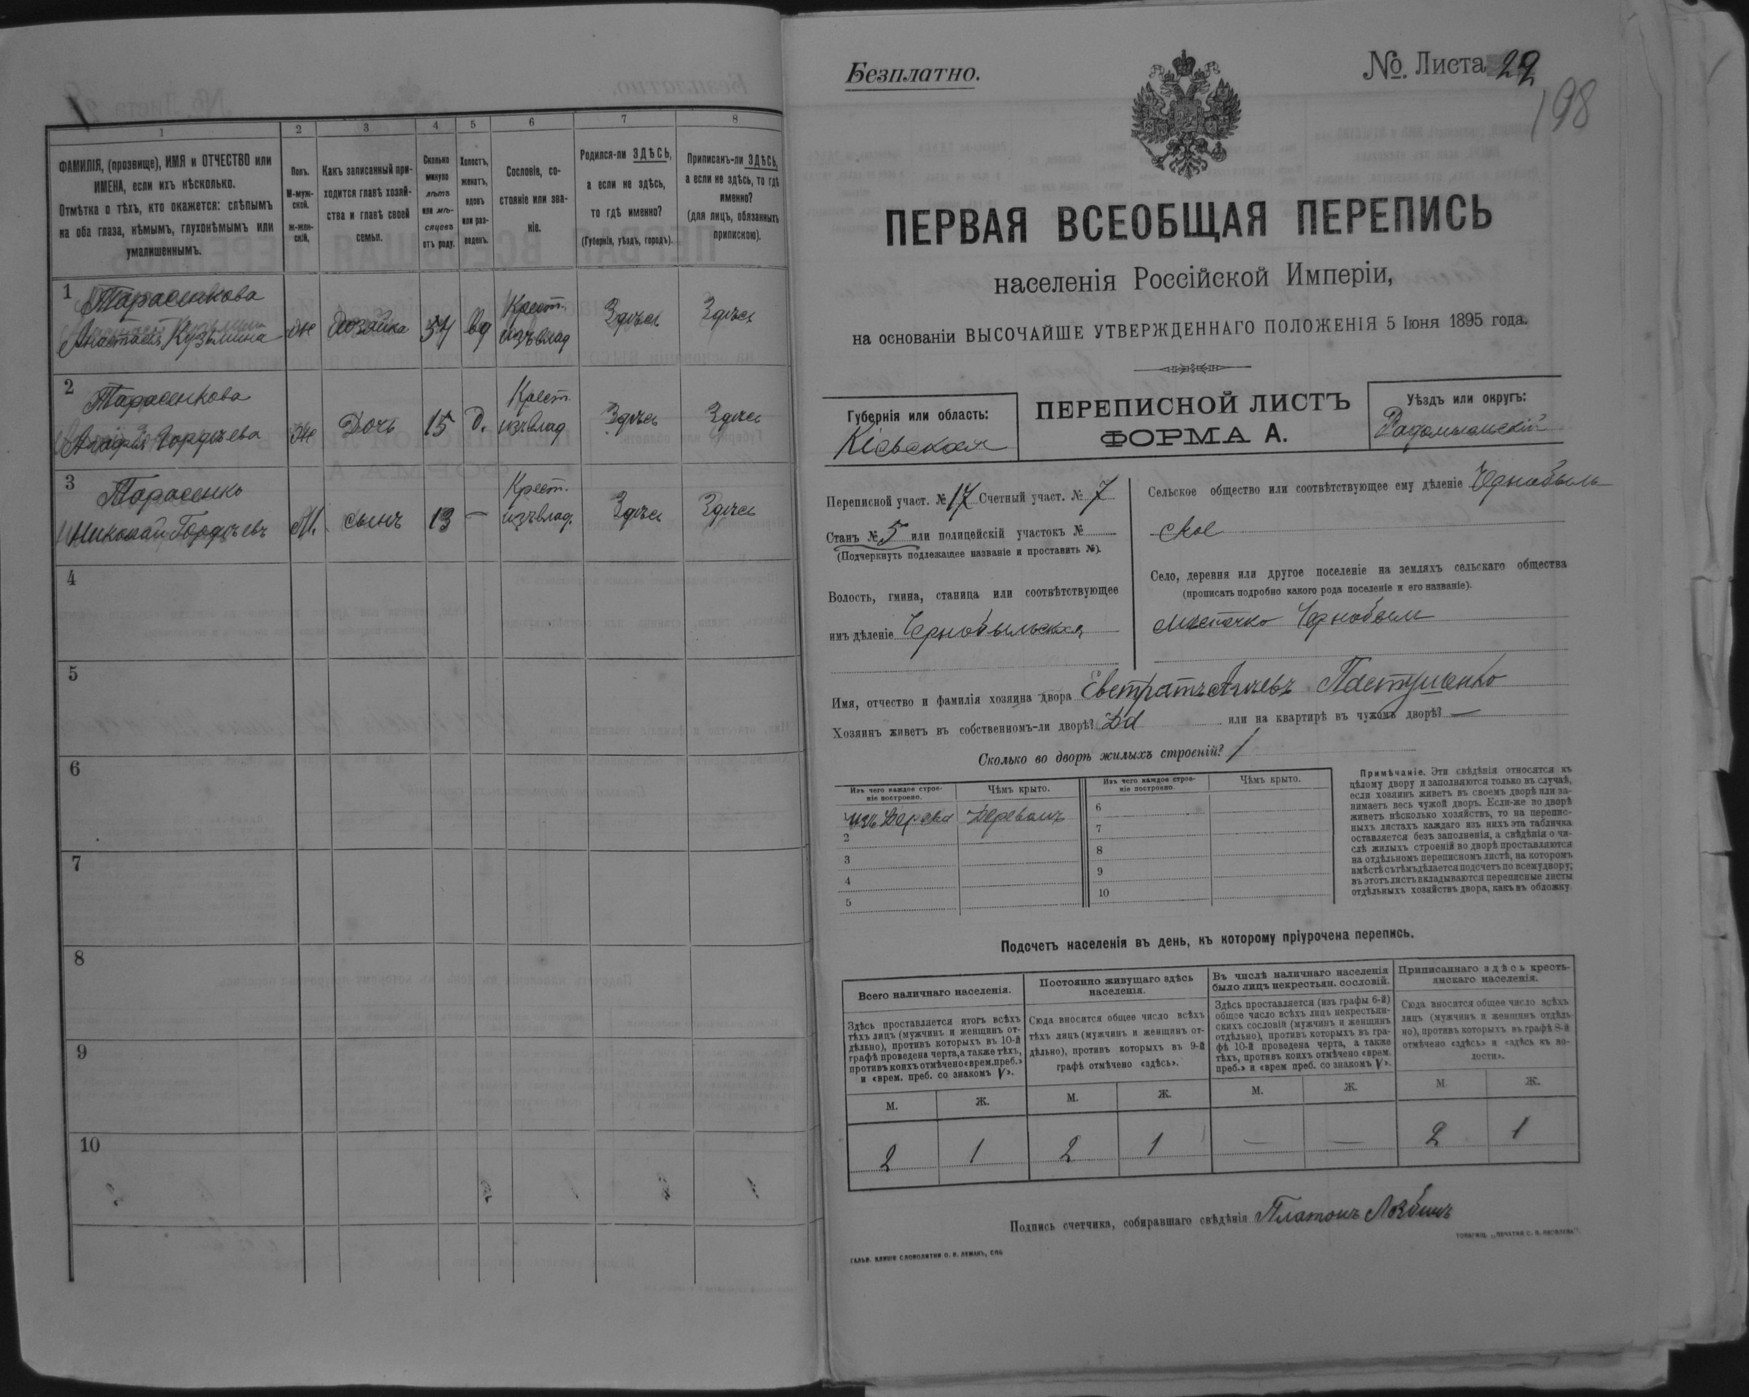 1
2
3
4
5
6
7
8
ФАМИЛІЯ, (прозвище), ИМЯ и ОТЧЕСТВО или
ИМЕНА, если ихъ нѣсколько.
Отмѣтка о тѣхъ, кто окажется: слѣпымъ
на оба глаза, нѣмымъ, глухонѣмымъ или
умалишеннымъ.
Полъ.
М-муж-
ской.
ж-жен-
скій.
Какъ записанный при-
ходится главѣ хозяй-
ства и главѣ своей
семьи.
Сколько
минуло
лѣтъ
или мѣ-
сяцевъ
отъ роду.
Холостъ,
женатъ,
вдовъ
или раз-
веденъ.
Сословіе, со-
стояніе или зва-
ніе.
Родился-ли ЗДѢСЬ,
а если не здѣсь,
то гдѣ именно?
(Губернія, уѣздъ, городъ).
Приписанъ-ли ЗДѢСЬ,
а если не здѣсь, то гдѣ
именно?
(для лицъ, обязанныхъ
припискою).
1 Тарасенкова
Анастасія Кузьмина
Ж
хозяйка
54
Вд
Крест.
изъ влад
Здѣсь
Здѣсь
2
Тарасенкова
Гордѣева
Ж
Дочь
15
Д.
Крест
изъ влад
Здѣсь
Здѣсь
3
Тарасенко
Николай Гордѣевъ
М.
сынъ
13
—
Крест.
изъ влад.
Здѣсь
Здѣсь
4
5
6
7
8
9
10
Безплатно.
№. Листа 22
198
ПЕРВАЯ ВСЕОБЩАЯ ПЕРЕПИСЬ
населенія Россійской Имперіи,
на основаніи ВЫСОЧАЙШЕ УТВЕРЖДЕННАГО ПОЛОЖЕНІЯ 5 Іюня 1895 года.
Губернія или область:
Кіевская
ПЕРЕПИСНОЙ ЛИСТЪ
ФОРМА А.
Уѣздъ или округъ:
Радомысльскій
Переписной участ. № 17 Счетный участ. № 7
Станъ № 5 или полицейскій участокъ №
(Подчеркнуть подлежащее названіе и проставить №).
Волость, гмина, станица или соотвѣтствующее
имъ дѣленіе Чернобыльская
Сельское общество или соотвѣтствующее ему дѣленіе Чернобыль-
ское
Село, деревня или другое поселеніе на земляхъ сельскаго общества
(прописать подробно какого рода поселеніе и его названіе).
мѣстечко Чернобыль
Имя, отчество и фамилія хозяина двора Евстратъ Пастушенко
Хозяинъ живетъ въ собственномъ-ли дворѣ? Да или на квартирѣ въ чужомъ дворѣ? —
Сколько во дворѣ жилыхъ строеній? 1
Изъ чего каждое строе-
ніе построено.
Чѣмъ крыто.
Изъ чего каждое строе-
ніе построено.
Чѣмъ крыто.
изъ Дерева
Деревомъ
2
3
4
5
6
7
8
9
10
Примѣчаніе. Эти свѣдѣнія относятся къ
цѣлому двору и заполняются только въ случаѣ,
если хозяинъ живетъ въ своемъ дворѣ или за-
нимаетъ весь чужой дворъ. Если-же во дворѣ
живетъ нѣсколько хозяйствъ, то на перепис-
ныхъ листахъ каждаго изъ нихъ эта табличка
оставляется безъ заполненія, а свѣдѣнія о чи-
слѣ жилыхъ строеній во дворѣ проставляются
на отдѣльномъ переписномъ листѣ, на которомъ
вмѣстѣ съ тѣмъ дѣлается подсчетъ по всему двору;
въ этотъ листъ вкладываются переписные листы
отдѣльныхъ хозяйствъ двора, какъ въ обложку.
Подсчетъ населенія въ день, къ которому пріурочена перепись.
Всего наличнаго населенія.
Здѣсь проставляется итогъ всѣхъ
тѣхъ лицъ (мужчинъ и женщинъ от-
дѣльно), противъ которыхъ въ 10-й
графѣ проведена черта, а также тѣхъ,
противъ коихъ отмѣчено «врем. преб.»
и «врем. преб. со знакомъ V».
Постоянно живущаго здѣсь
населенія.
Сюда вносится общее число всѣхъ
тѣхъ лицъ (мужчинъ и женщинъ от-
дѣльно), противъ которыхъ въ 9-й
графѣ отмѣчено «здѣсь».
Въ числѣ наличнаго населенія
было лицъ некрестьян. сословій.
Здѣсь проставляется (изъ графы 6-й)
общее число всѣхъ лицъ некрестьян-
скихъ сословій (мужчинъ и женщинъ
отдѣльно), противъ которыхъ въ гра-
фѣ 10-й проведена черта, а также
тѣхъ, противъ коихъ отмѣчено «врем.
преб.» и «врем преб. со знакомъ V».
Приписаннаго здѣсь кресть-
янскаго населенія.
Сюда вносится общее число всѣхъ
лицъ (мужчинъ и женщинъ отдѣль-
но), противъ которыхъ въ графѣ 8-й
отмѣчено «здѣсь» и «здѣсь въ во-
лости».
М.
Ж.
М.
Ж.
М.
Ж.
М.
Ж.
2
1
2
1
—
—
2
1
Подпись счетчика, собиравшаго свѣдѣнія Платонъ
ГАЛЬВ. КЛИШЕ СЛОВОЛИТНИ О. И. ЛЕМАНЪ, СПБ.